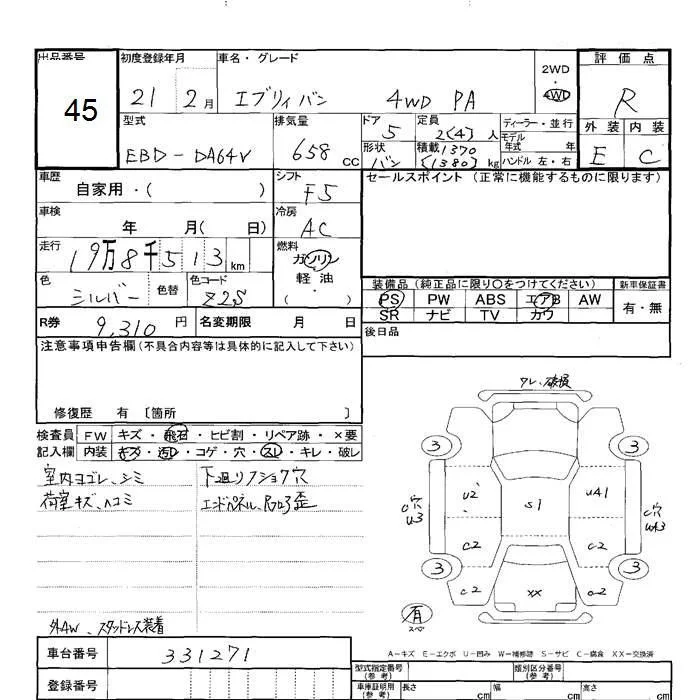 出品番号 初度登録年月 車名・グレード 評価点
45
21 2月 エブリィバン 4WD PA 2WD・4WD R
型式 排気量 ドア 定員 ディーラー・並行 外装 内装
EBD-DA64V 658cc 5 2(4)人 モデル年式 年 E C
形状 積載 1370
バン (1380)kg ハンドル 左・右
車歴 シフト セールスポイント (正常に機能するものに限ります)
自家用・( ) F5
車検 年 月( 日) 冷房 AC
走行 19万8千513km 燃料 ガソリン・軽油・( )
色 シルバー 色替 色コード Z2S
装備品 (純正品に限り〇をつけてください) 新車保証書
PS PW ABS エアB AW 有・無
SR ナビ TV カワ
R券 9,310円 名変期限 月 日 後日品
注意事項申告欄(不具合内容等は具体的に記入して下さい)
修復歴 有 〔箇所 〕
検査員 FW キズ・飛石・ヒビ割・リペア跡・×要
記入欄 内装 キズ・汚れ・コゲ・穴・スレ・キレ・破レ
室内ヨゴレ、シミ
荷室キズ、ヘコミ
下廻りフショク穴
エンドパネル、フロア歪
外AW、スタッドレス装着
ワレ、破損
3 3
C穴 U3 U2 S1 U41 C穴
C2 C2
3 3
C2 XX C2
有
スペア
A-キズ E-エクボ U-凹み W-補修跡 S-サビ C-腐食 XX-交換済
車台番号 331271
登録番号
型式指定番号(参考) 類別区分番号(参考)
車庫証明用(参考) 長さ cm 幅 cm 高さ cm